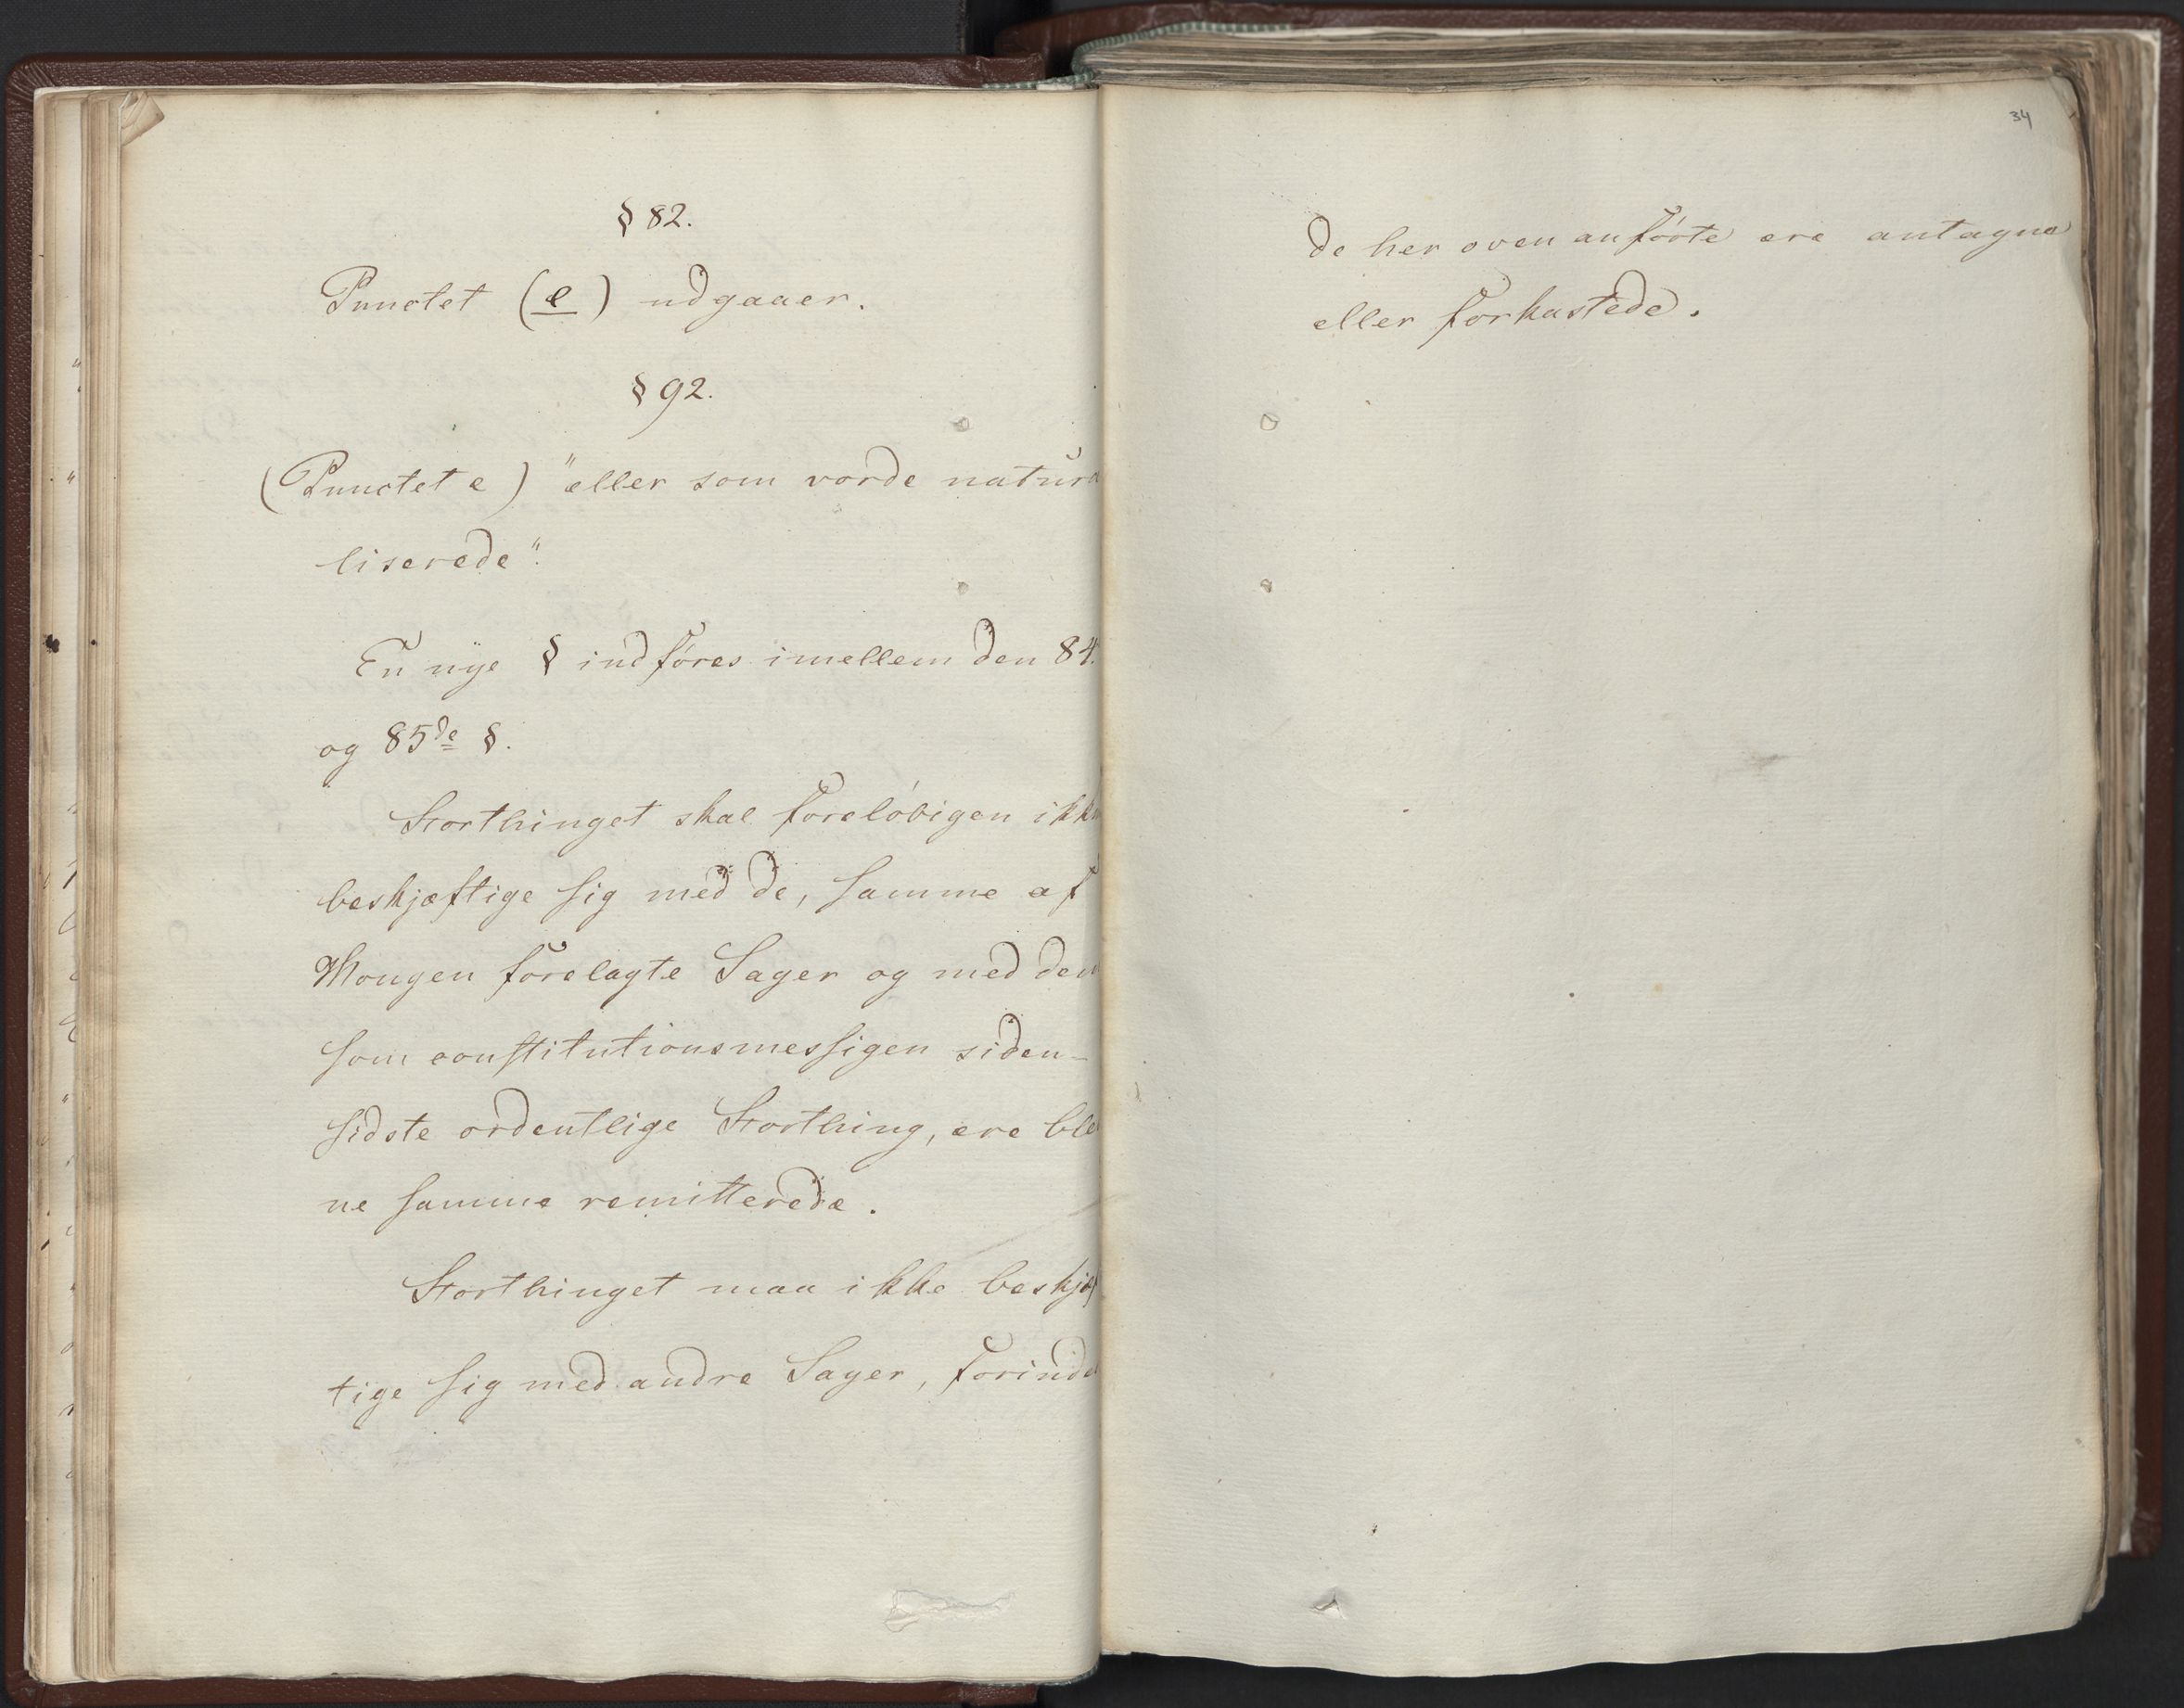 § 82.
Punctet (e) udgaaer.
§ 92.
(Punctet e) "eller som vorde natura
liserede".
En nÿe § indføres imellem den 84.
og 85de §.
Storthinget skal foreløbigen ikke
beskjæftige sig med de, samme af
Kongen forelagte Sager og med dem
som constitutionsmessigen siden-
sidste ordentlige Storthing, ere ble
ne samme remitterede.
Storthinget maa ikke beskjæf
tige sig med andre Sager, forinde
34
de her oven anførte ere antagne
eller forkastede.